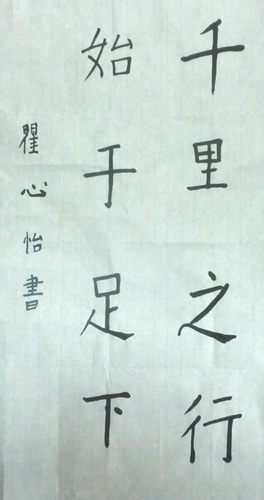 千里之行
始于足下
瞿心怡書